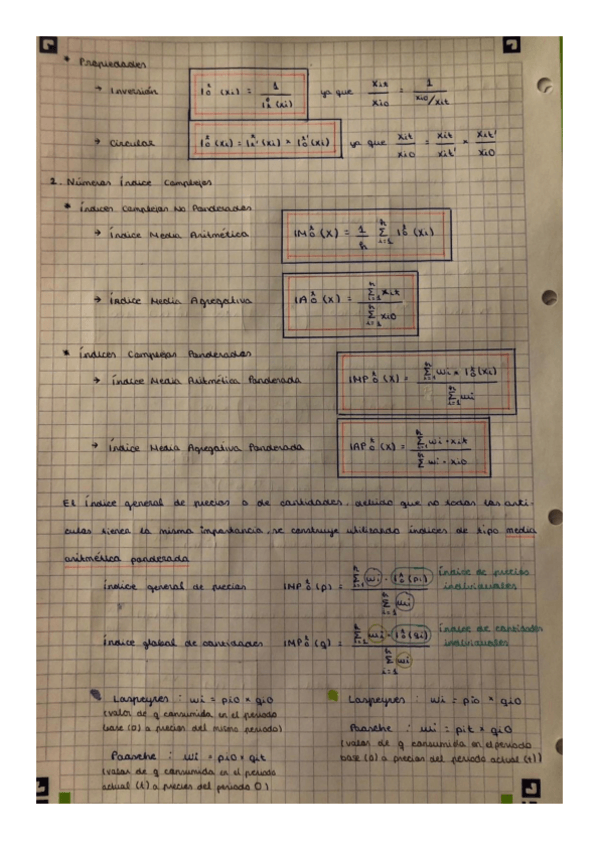 • Propiedades
→ Inversión I₀ᵗ(xi) = 1 / Iₜ⁰(xi) ya que xit/xi0 = 1 / (xi0/xit)
→ Circular I₀ᵗ(xi) = Iₜ'ᵗ(xi) × I₀ᵗ'(xi) ya que xit/xi0 = xit/xit' × xit'/xi0
2. Números Índice Complejos
• Índices Complejos No Ponderados
→ Índice Media Aritmética IM₀ᵗ(X) = 1/h Σᵢ₌₁ʰ I₀ᵗ(xi)
→ Índice Media Agregativa IA₀ᵗ(X) = Σᵢ₌₁ʰ xit / Σᵢ₌₁ʰ xi0
• Índices Complejos Ponderados
→ Índice Media Aritmética Ponderada IMP₀ᵗ(X) = Σᵢ₌₁ʰ wi × I₀ᵗ(xi) / Σᵢ₌₁ʰ wi
→ Índice Media Agregativa Ponderada IAP₀ᵗ(X) = Σᵢ₌₁ʰ wi · xit / Σᵢ₌₁ʰ wi · xi0
El índice general de precios o de cantidades, debido que no todos los artí-
culos tienen la misma importancia, se construye utilizando índices de tipo media
aritmética ponderada
índice general de precios IMP₀ᵗ(p) = Σᵢ₌₁ʰ wi · I₀ᵗ(pi) / Σᵢ₌₁ʰ wi índice de precios individuales
índice global de cantidades IMP₀ᵗ(q) = Σᵢ₌₁ʰ wi · I₀ᵗ(qi) / Σᵢ₌₁ʰ wi índice de cantidades individuales
Laspeyres : wi = pi0 × qi0
(valor de q consumida en el periodo
base (0) a precios del mismo periodo)
Paasche : wi = pi0 × qit
(valor de q consumida en el periodo
actual (t) a precios del periodo 0)
Laspeyres : wi = pi0 × qi0
Paasche : wi = pit × qi0
(valor de q consumida en el periodo
base (0) a precios del periodo actual (t))